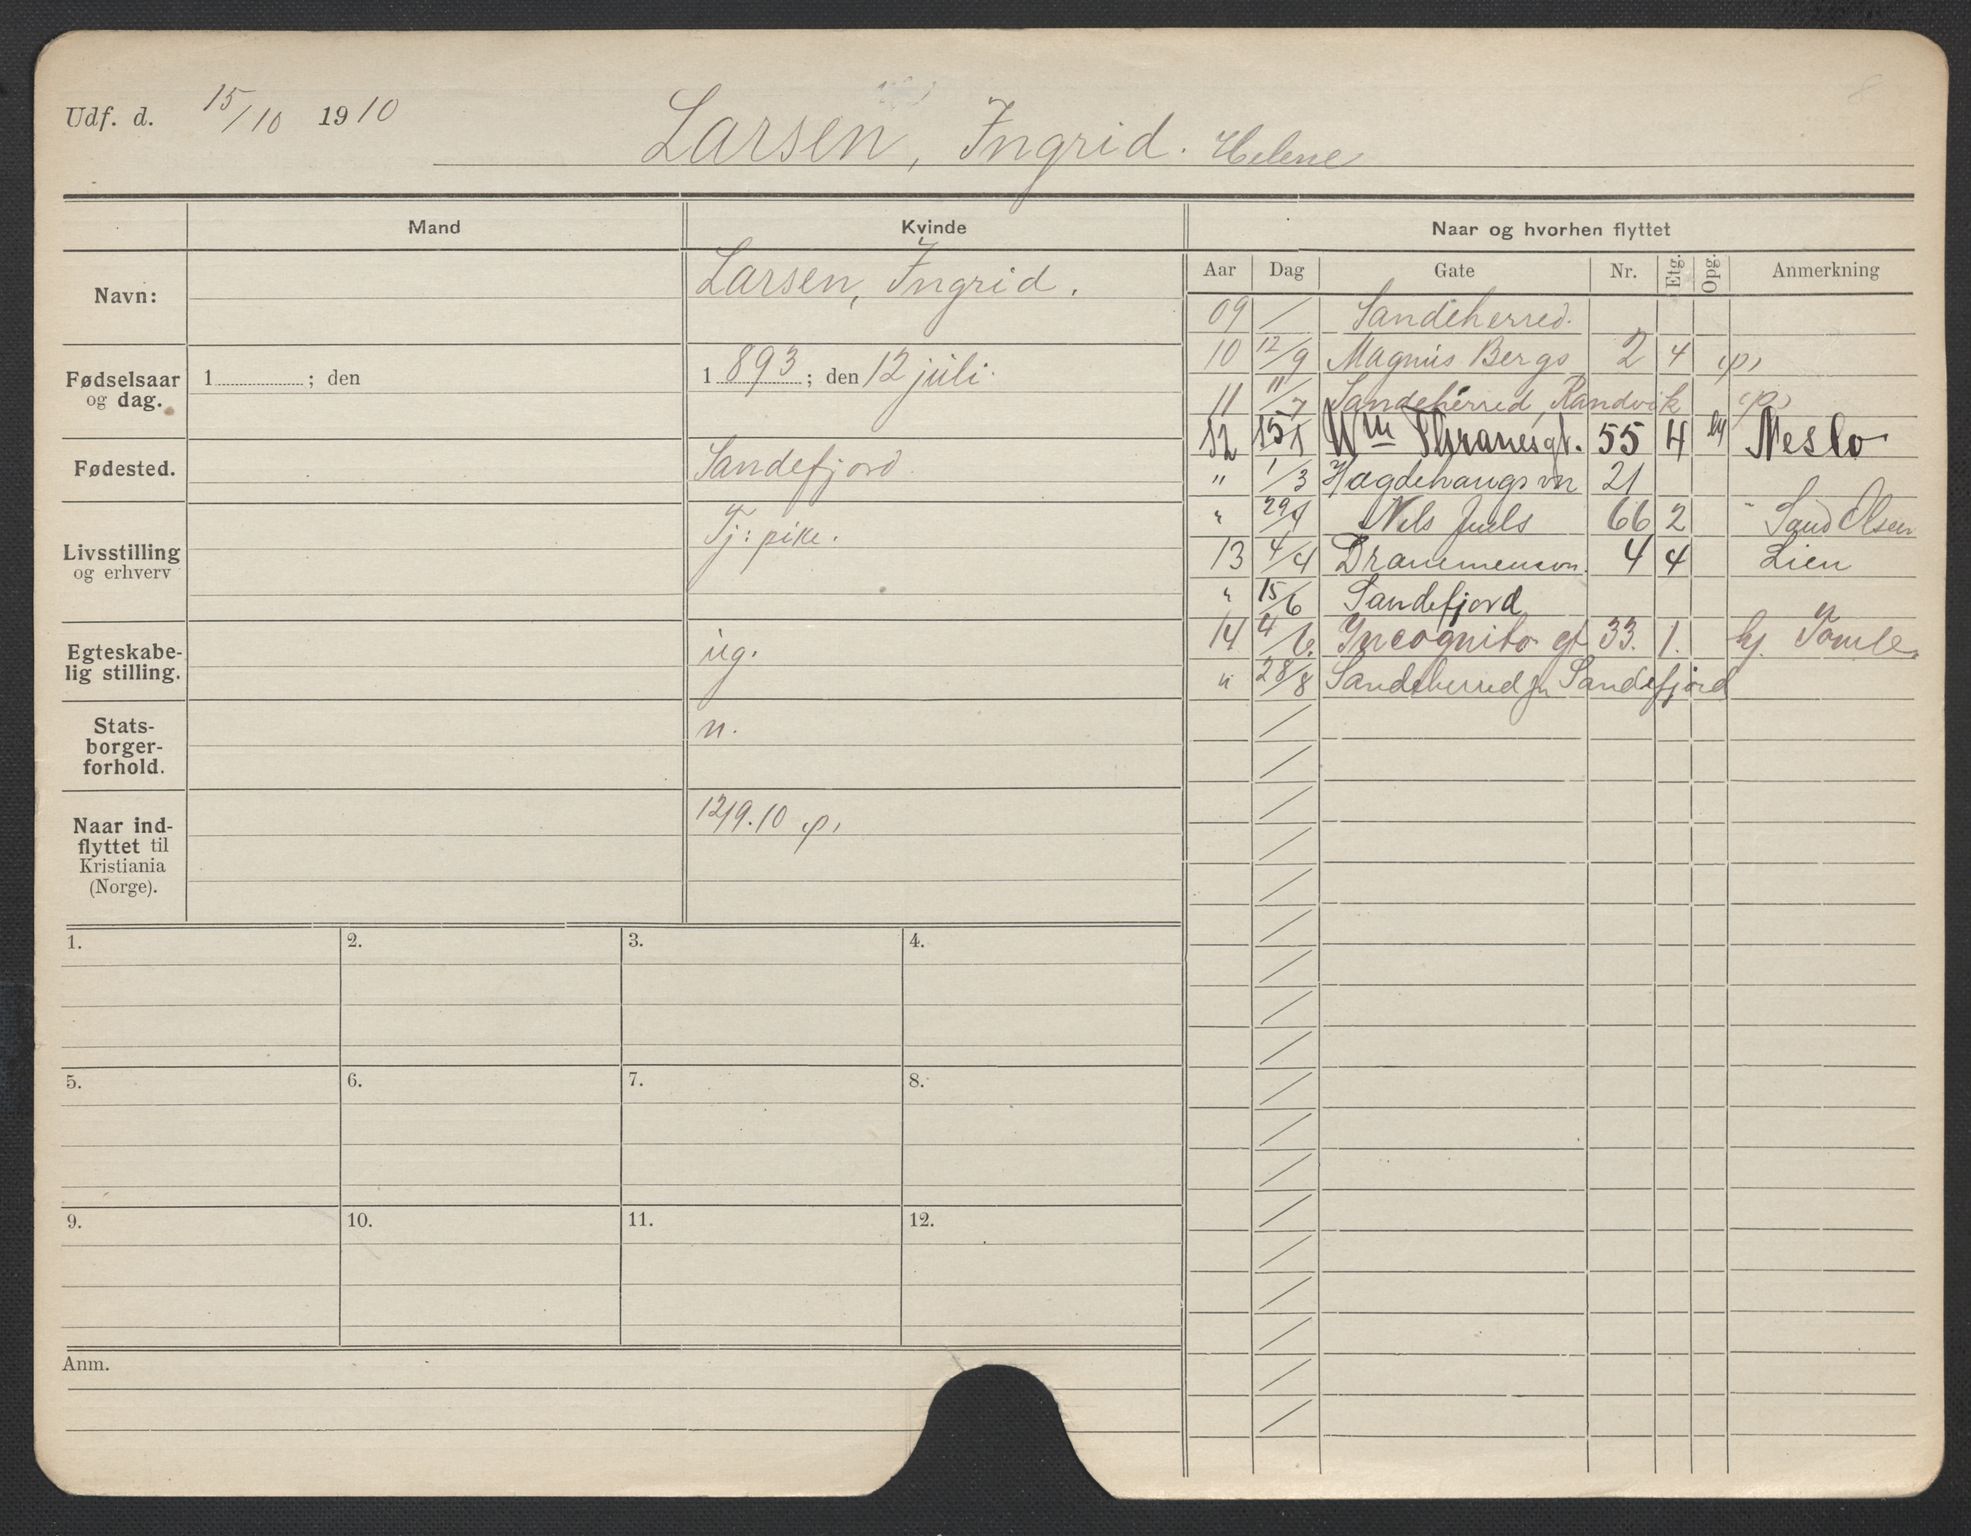 Udf. d. 15/10 1910
Larsen, Ingrid. Helene
Mand
Kvinde
Navn:
Larsen, Ingrid.
Fødselsaar og dag.
1 ; den
1 893 ; den 12 juli.
Fødested.
Sandefjord.
Livsstilling og erhverv
Tj: pike.
Egteskabe-
lig stilling.
ug.
Stats-
borger-
forhold.
n.
Naar ind-
flyttet til
Kristiania
(Norge).
12/9.10 p,
1. 2. 3. 4.
5. 6. 7. 8.
9. 10. 11. 12.
Anm.
Naar og hvorhen flyttet
Aar Dag Gate Nr. Etg. Opg. Anmerkning
09 / Sandeherred.
10 12/9 Magnus Bergs 2 4 p,
11 11/7 Sandeherred, Randvik p,
12 15/1 Wm Thranesgt. 55 4 Neslo
" 1/3 Hægdehaugsvn 21
" 29/4 Nils Juels 66 2 " Sand Olsen
13 4/4 Drammensvn. 4 4 Lien
" 15/6 Sandefjord
14 4/6. Incognito gt 33. 1. hj. Tömle.
" 28/8 Sandeherred Sandefjord